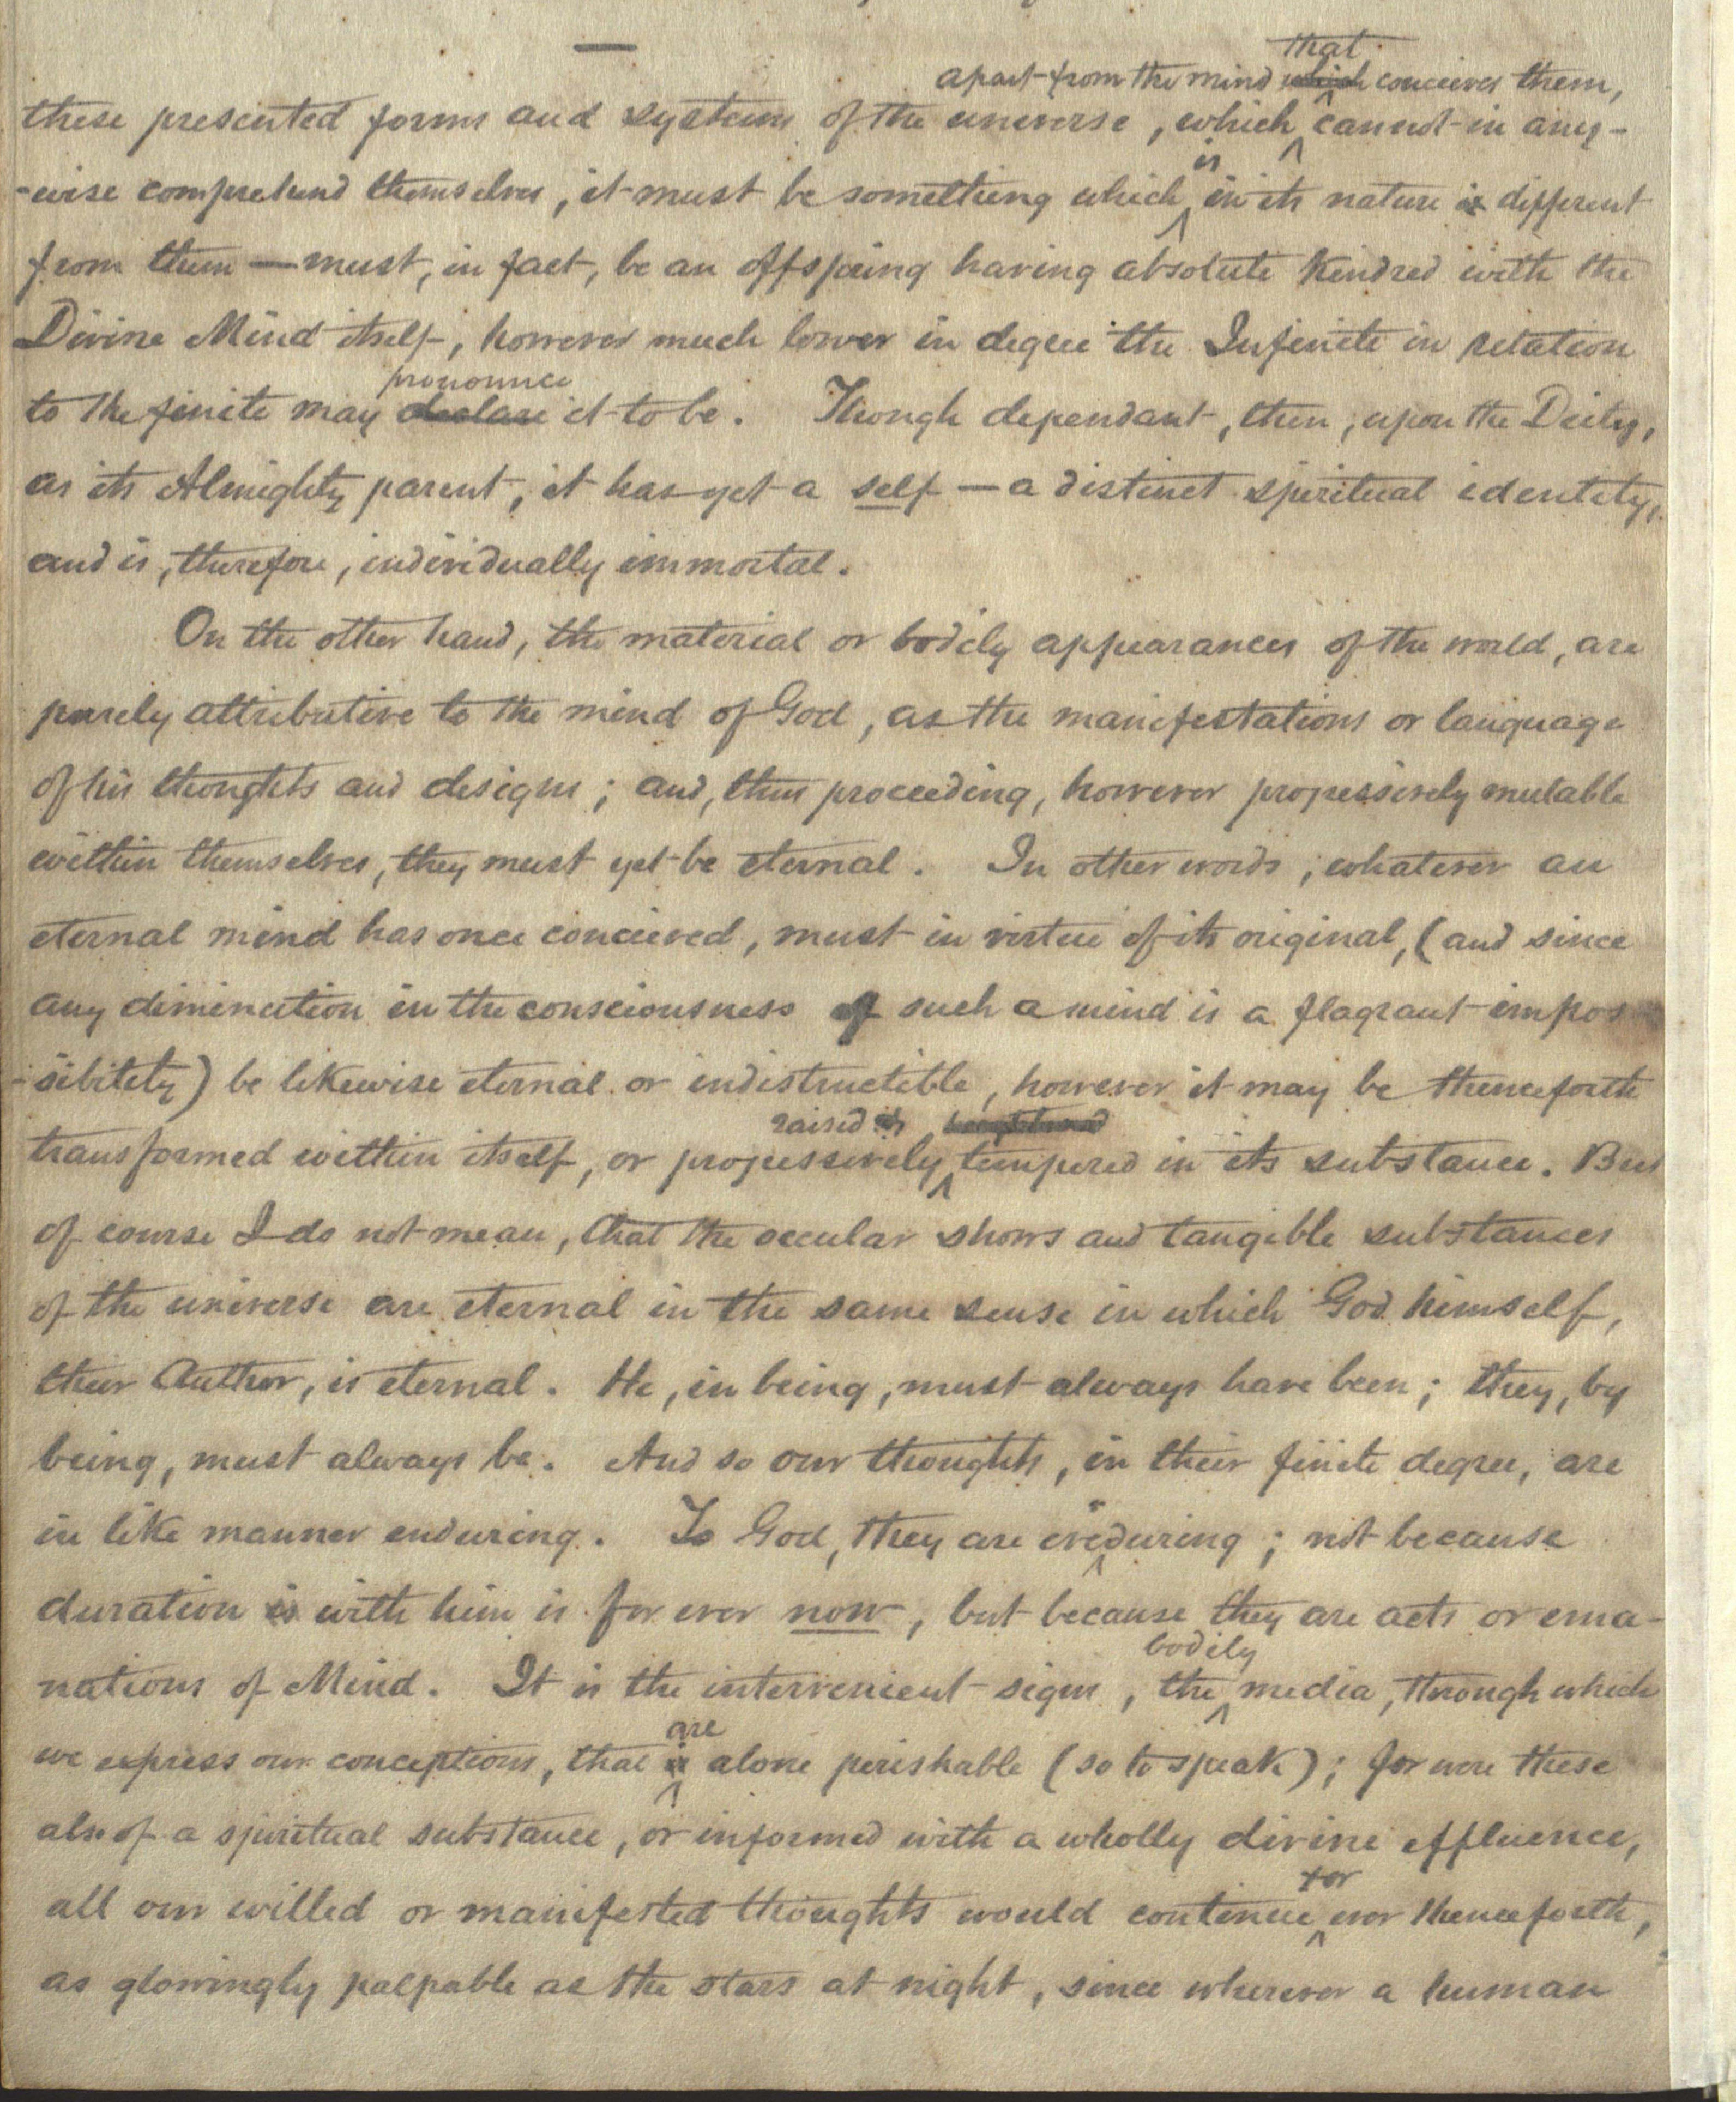 that
apart from the mind which conceives them,
these presented forms and systems of the universe, which cannot in any-
-wise comprehend themselves, it must be something which in its nature is different
is
from them — must, in fact, be an offspring having absolute kindred with the
Divine Mind itself, however much lower in degree the Infinite in relation
pronounce
to the finite may declare it to be. Though dependant, then, upon the Deity,
as its Almighty parent, it has yet a self — a distinct spiritual identity,
and is, therefore, individually immortal.
On the other hand, the material or bodily appearances of the world, are
purely attributive to the mind of God, as the manifestations or language
of his thoughts and designs; and, thus proceeding, however progressively mutable
within themselves, they must yet be eternal. In other words, whatever an
eternal mind has once conceived, must in virtue of its original, (and since
any diminution in the consciousness of such a mind is a flagrant impos
-sibility) be likewise eternal or indistructible, however it may be thenceforth
raised or heightened
transformed within itself, or progressively tempered in its substance. But
of course I do not mean, that the occular shows and tangible substances
of the universe are eternal in the same sense in which God himself,
their Author, is eternal. He, in being, must always have been; they, by
being, must always be. And so our thoughts, in their finite degree, are
in like manner enduring. To God, they are enduring; not because
duration is with him is for ever now, but because they are acts or ema-
bodily
nations of Mind. It is the intervenient signs, the media, through which
are
we express our conceptions, that is alone perishable (so to speak); for were these
also of a spiritual substance, or informed with a wholly divine effluence,
for
all our willed or manifested thoughts would continue ever thenceforth,
as glowingly palpable as the stars at night, since wherever a human